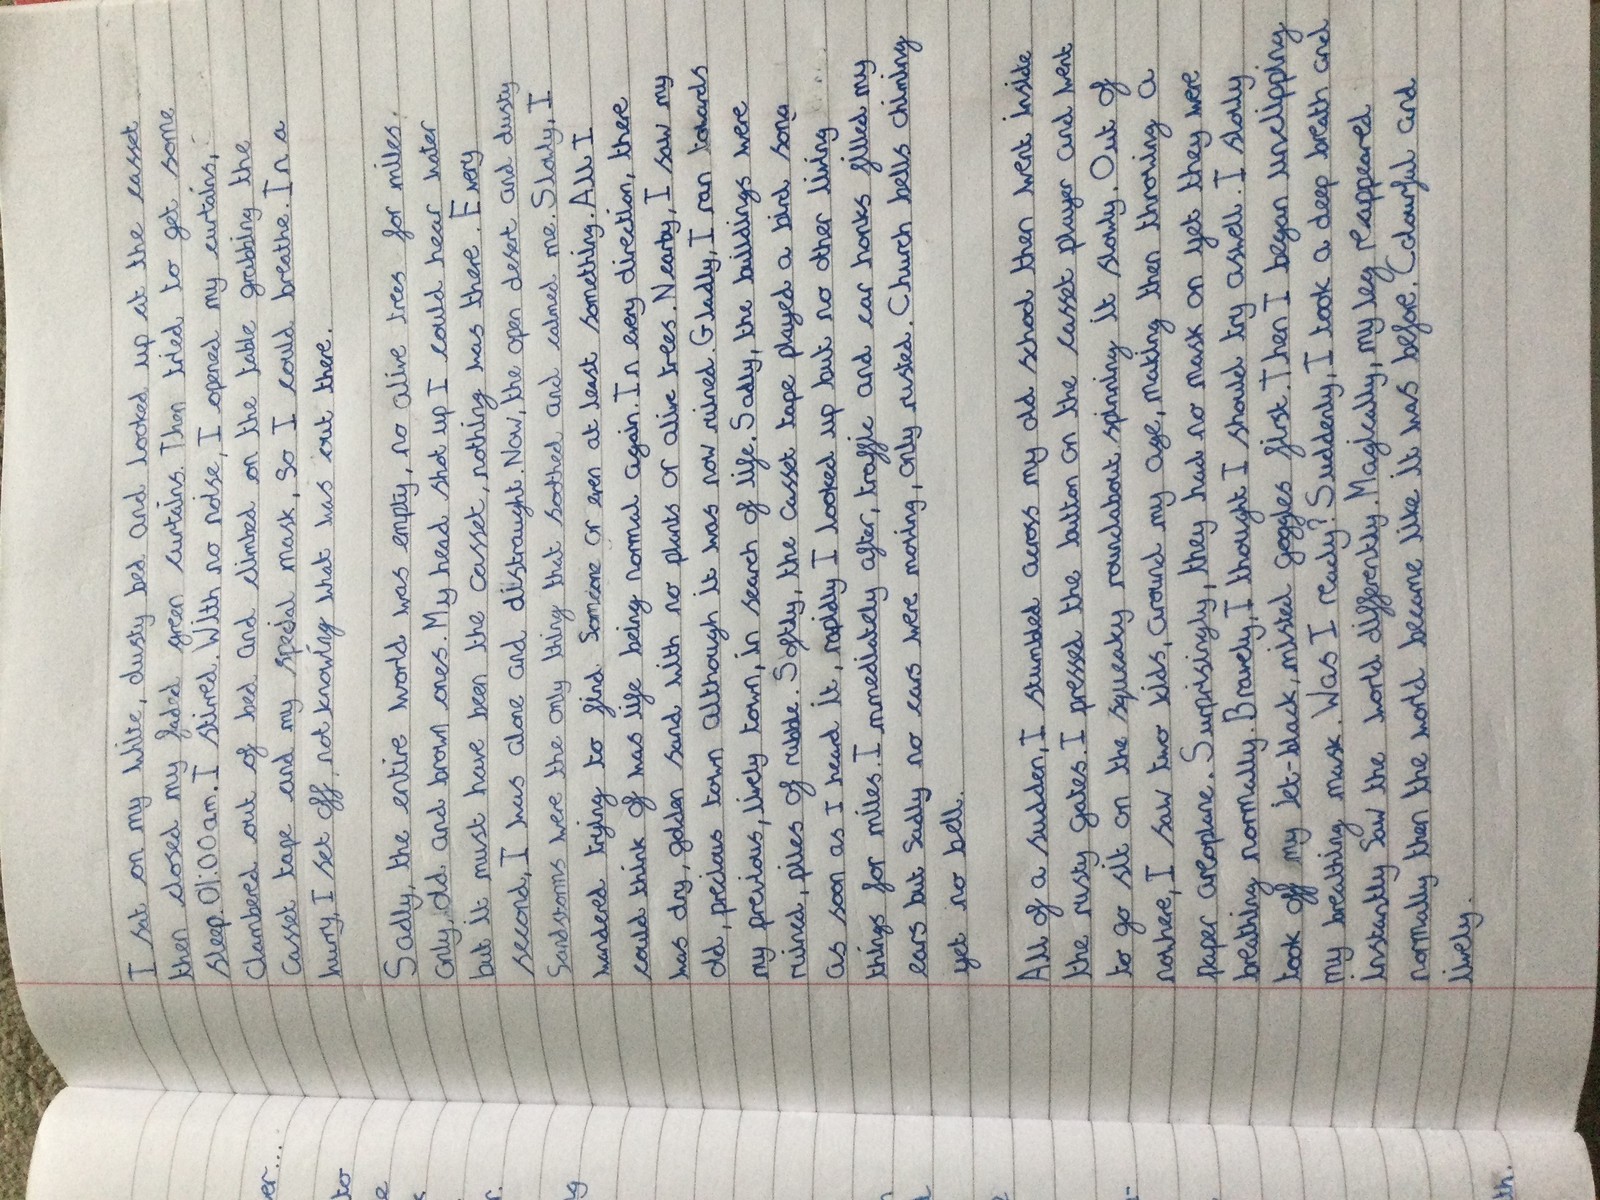 I sat on my white, dusty bed and looked up at the casset
then closed my faded green curtains. Then tried to get some
sleep. 01:00am. I stirred. With no noise, I opened my curtains,
clambered out of bed and climbed on the table grabbing the
casset tape and my special mask, so I could breathe. In a
hurry, I set off, not knowing what was out there.
Sadly, the entire world was empty, no alive trees for miles.
only, old and brown ones. My head shot up I could hear water
but it must have been the casset, nothing was there. Every
second, I was alone and distraught. Now, the open desert and dusty
Sandstorms were the only thing that soothed and calmed me. Slowly, I
wandered trying to find. Someone or even at least something. All I
could think of was life being normal again. In every direction, there
was dry, golden sand with no plants or alive trees. Nearby, I saw my
old, precious town although it was now ruined. Gladly, I ran towards
my previous, lively town, in search of life. Sadly, the buildings were
ruined, piles of rubble. Softly, the casset tape played a bird song
as soon as I heard it, rapidly I looked up but no other living
things for miles. Immediately after, traffic and car honks filled my
ears but sadly no cars were moving, only rusted. Church bells chiming
yet no bell.
All of a sudden, I stumbled across my old school then went inside
the rusty gates. I pressed the button on the casset player and went
to go sit on the squeaky roundabout spinning it slowly. Out of
nowhere, I saw two kids, around my age, making then throwing a
paper areoplane. Surprisingly, they had no mask on yet they were
breathing normally. Bravely, I thought I should try aswell. I slowly
took off my jet-black, misted goggles first. Then I began unclipping
my breathing mask. Was I ready? Suddenly, I took a deep breath and
instantly saw the world differently. Magically, my leg reappeared
normally then the world became like it was before. Colourful and
lively.
er...
to
e
r.
ng
th.